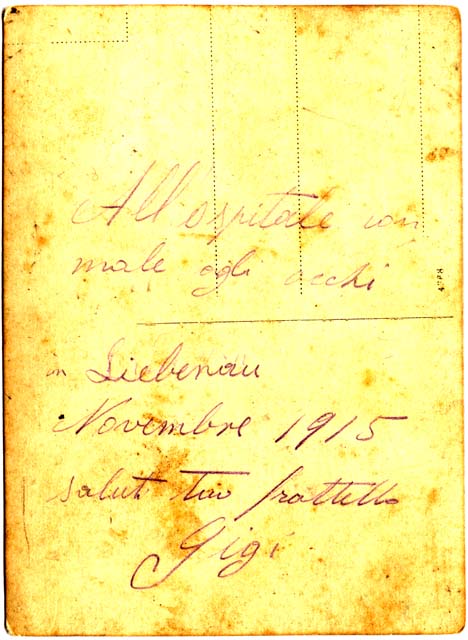 All'ospitale con
male agli occhi
in Liebenau
Novembre 1915
saluti tuo frattello
Gigi